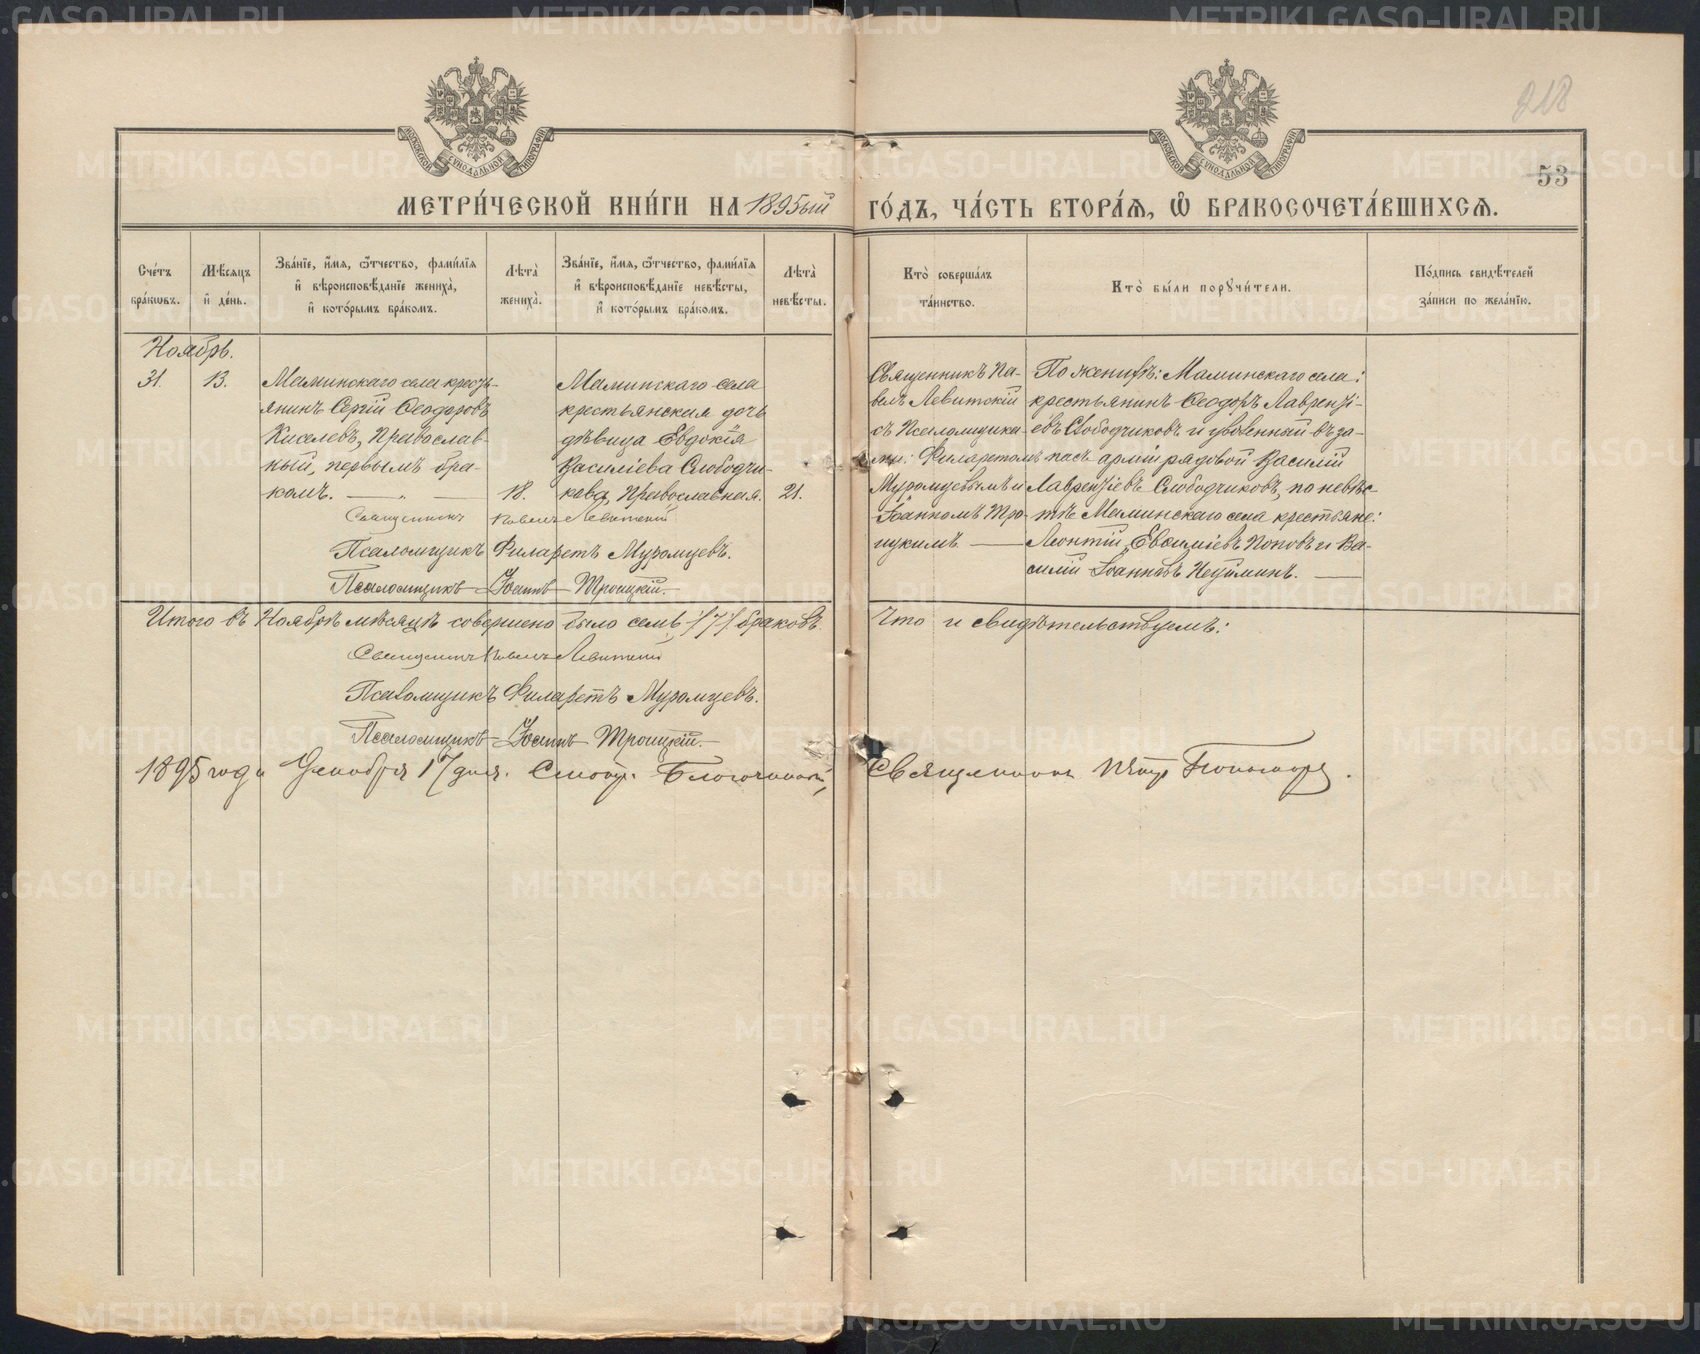 218
53
МОСКОВСКОЙ СѴНОДАЛЬНОЙ ТИПОГРАФІИ
МОСКОВСКОЙ СѴНОДАЛЬНОЙ ТИПОГРАФІИ
МЕТРИ́ЧЕСКОЙ КНИ́ГИ НА 1895ый ГО́ДЪ, ЧА́СТЬ ВТОРА́Я, Ѽ БРАКОСОЧЕТА́ВШИХСЯ.
Сче́тъ бра́кѡвъ.
Мѣ́сяцъ и҆ де́нь.
Зва́нїе, и҆́мя, ѻ҆́тчество, фами́лїя
и҆ вѣроисповѣ́данїе жениха̀,
и҆ кото́рымъ бра́комъ.
Лѣ́та̀ жениха̀.
Зва́нїе, и҆́мя, ѻ҆́тчество, фами́лїя
и҆ вѣроисповѣ́данїе невѣ́сты,
и҆ кото́рымъ бра́комъ.
Лѣ́та̀ невѣ́сты.
Кто̀ соверша́лъ та́инство.
Кто̀ бы́ли порꙋчи́тели.
По́дпись свидѣ́телей за́писи по жела́нїю.
Ноябрь.
31. 13.
Маминскаго села кресть-
янинъ Сергій Ѳеодоровъ
Киселевъ, православ-
ный, первымъ бра-
комъ. — „ —
18.
Маминскаго села
крестьянская дочь
дѣвица Евдокія
Василіева Слободчи-
кова, православная.
21.
Священникъ Па-
велъ Левитскій
съ Псаломщика-
ми: Филаретомъ
Муромцевымъ и
Іоанномъ Тро-
ицкимъ. —
По женихѣ: Маминскаго села:
крестьянинъ Ѳеодоръ Лаврентi-
евъ Слободчиковъ и уволенный въ за-
пасъ арміи рядовой Василій
Лаврентіевъ Слободчиковъ, по невѣс-
тѣ Маминскаго села крестьяне:
Леонтій Евѳиміевъ Поповъ и Ва-
силій Іоанновъ Неуйминъ. —
Священникъ Павелъ Левитскій
Псаломщикъ Филаретъ Муромцевъ.
Псаломщикъ Іоаннъ Троицкій.
Итого въ Ноябрѣ мѣсяцѣ совершено было семь /7/ браковъ. Что и свидѣтельствуемъ:
Священникъ Павелъ Левитскій
Псаломщикъ Филаретъ Муромцевъ.
Псаломщикъ Іоаннъ Троицкій.
1895 года Декабря 17 дня. Смотр. Благочинный, Священникъ Петръ Пономаревъ.
METRIKI.GASO-URAL.RU